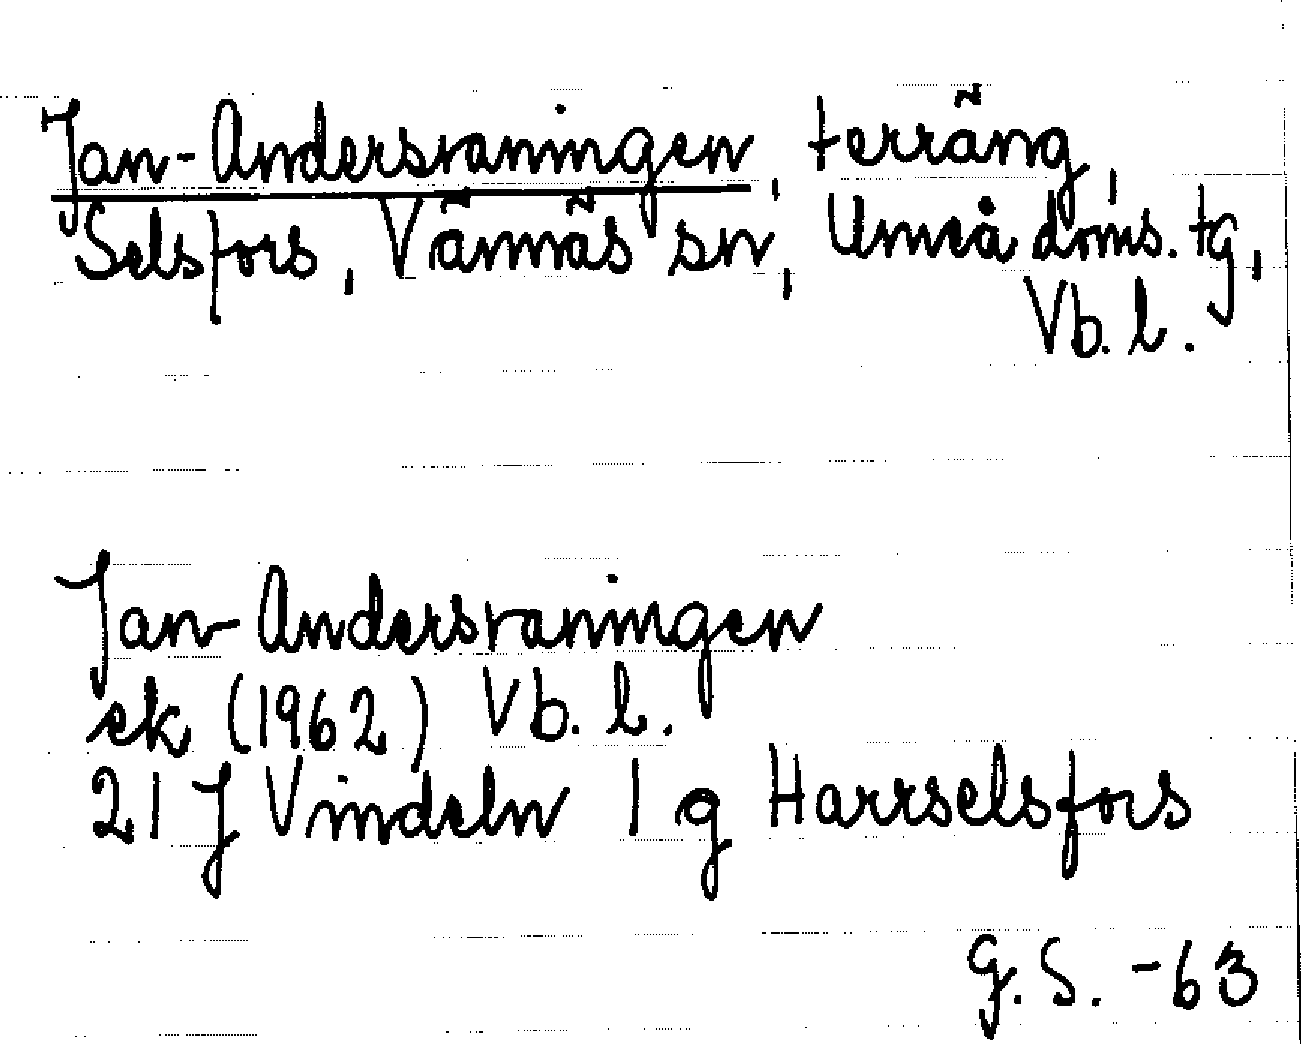 Jan-Andersraningen, terräng,
Selsfors, Vännäs sn, Umeå doms. tg,
Vb. l.
Jan-Andersraningen
ek (1962) Vb. l.
21 J Vindeln 1 g Harrselsfors
G. S. -63